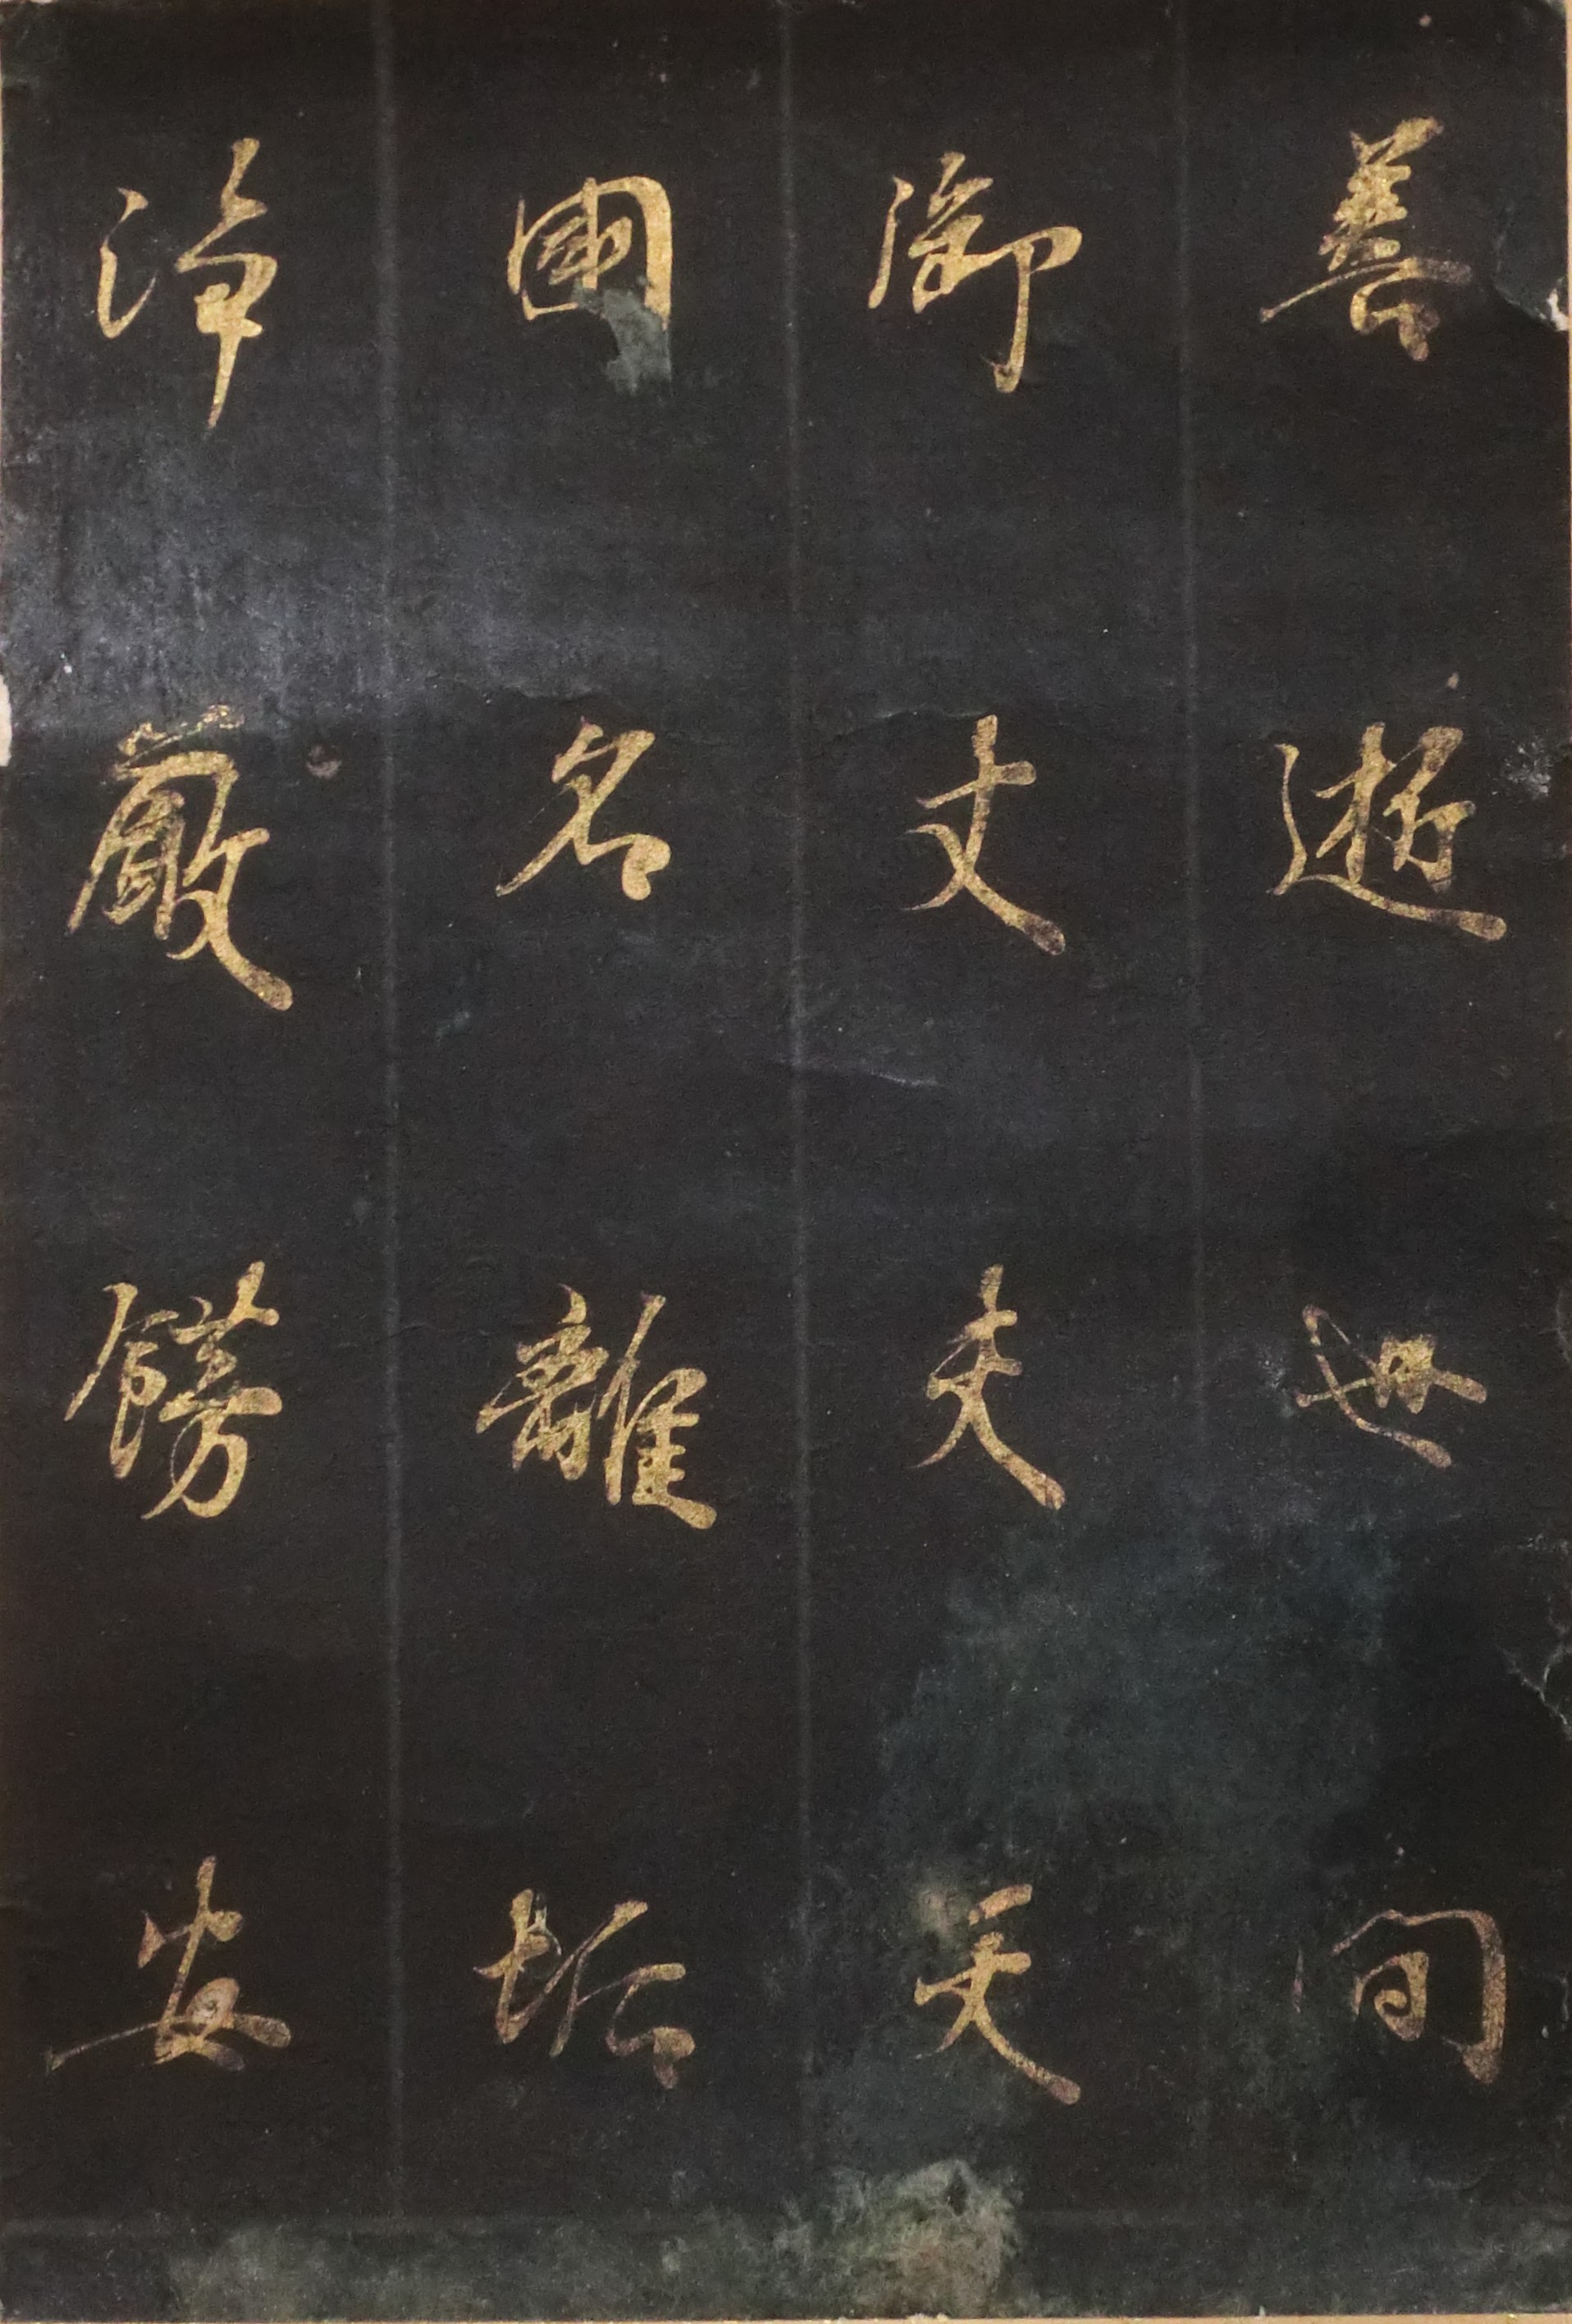 善逝世間
御丈夫天
國名離垢
淨嚴餝安